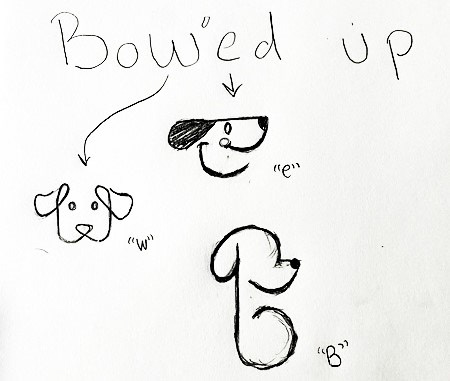 Bow"ed up
"e"
"w"
"B"